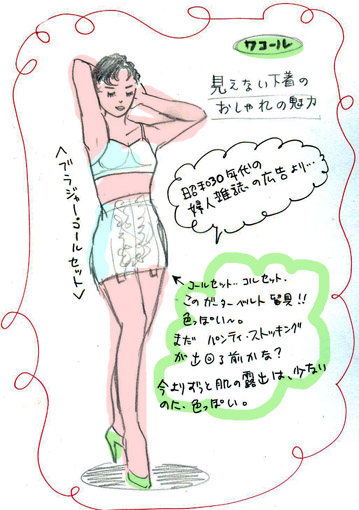 ワコール
見えない下着の
おしゃれの魅力
昭和30年代の
婦人雑誌の広告より…
<ブラジャー・コールセット>
コールセット‥コルセット.
このガーターベルト留具!!
色っぽい〜。
まだ パンティ・ストッキング
が出る前かな?
今よりずっと肌の露出は、少ない
のに、色っぽい。